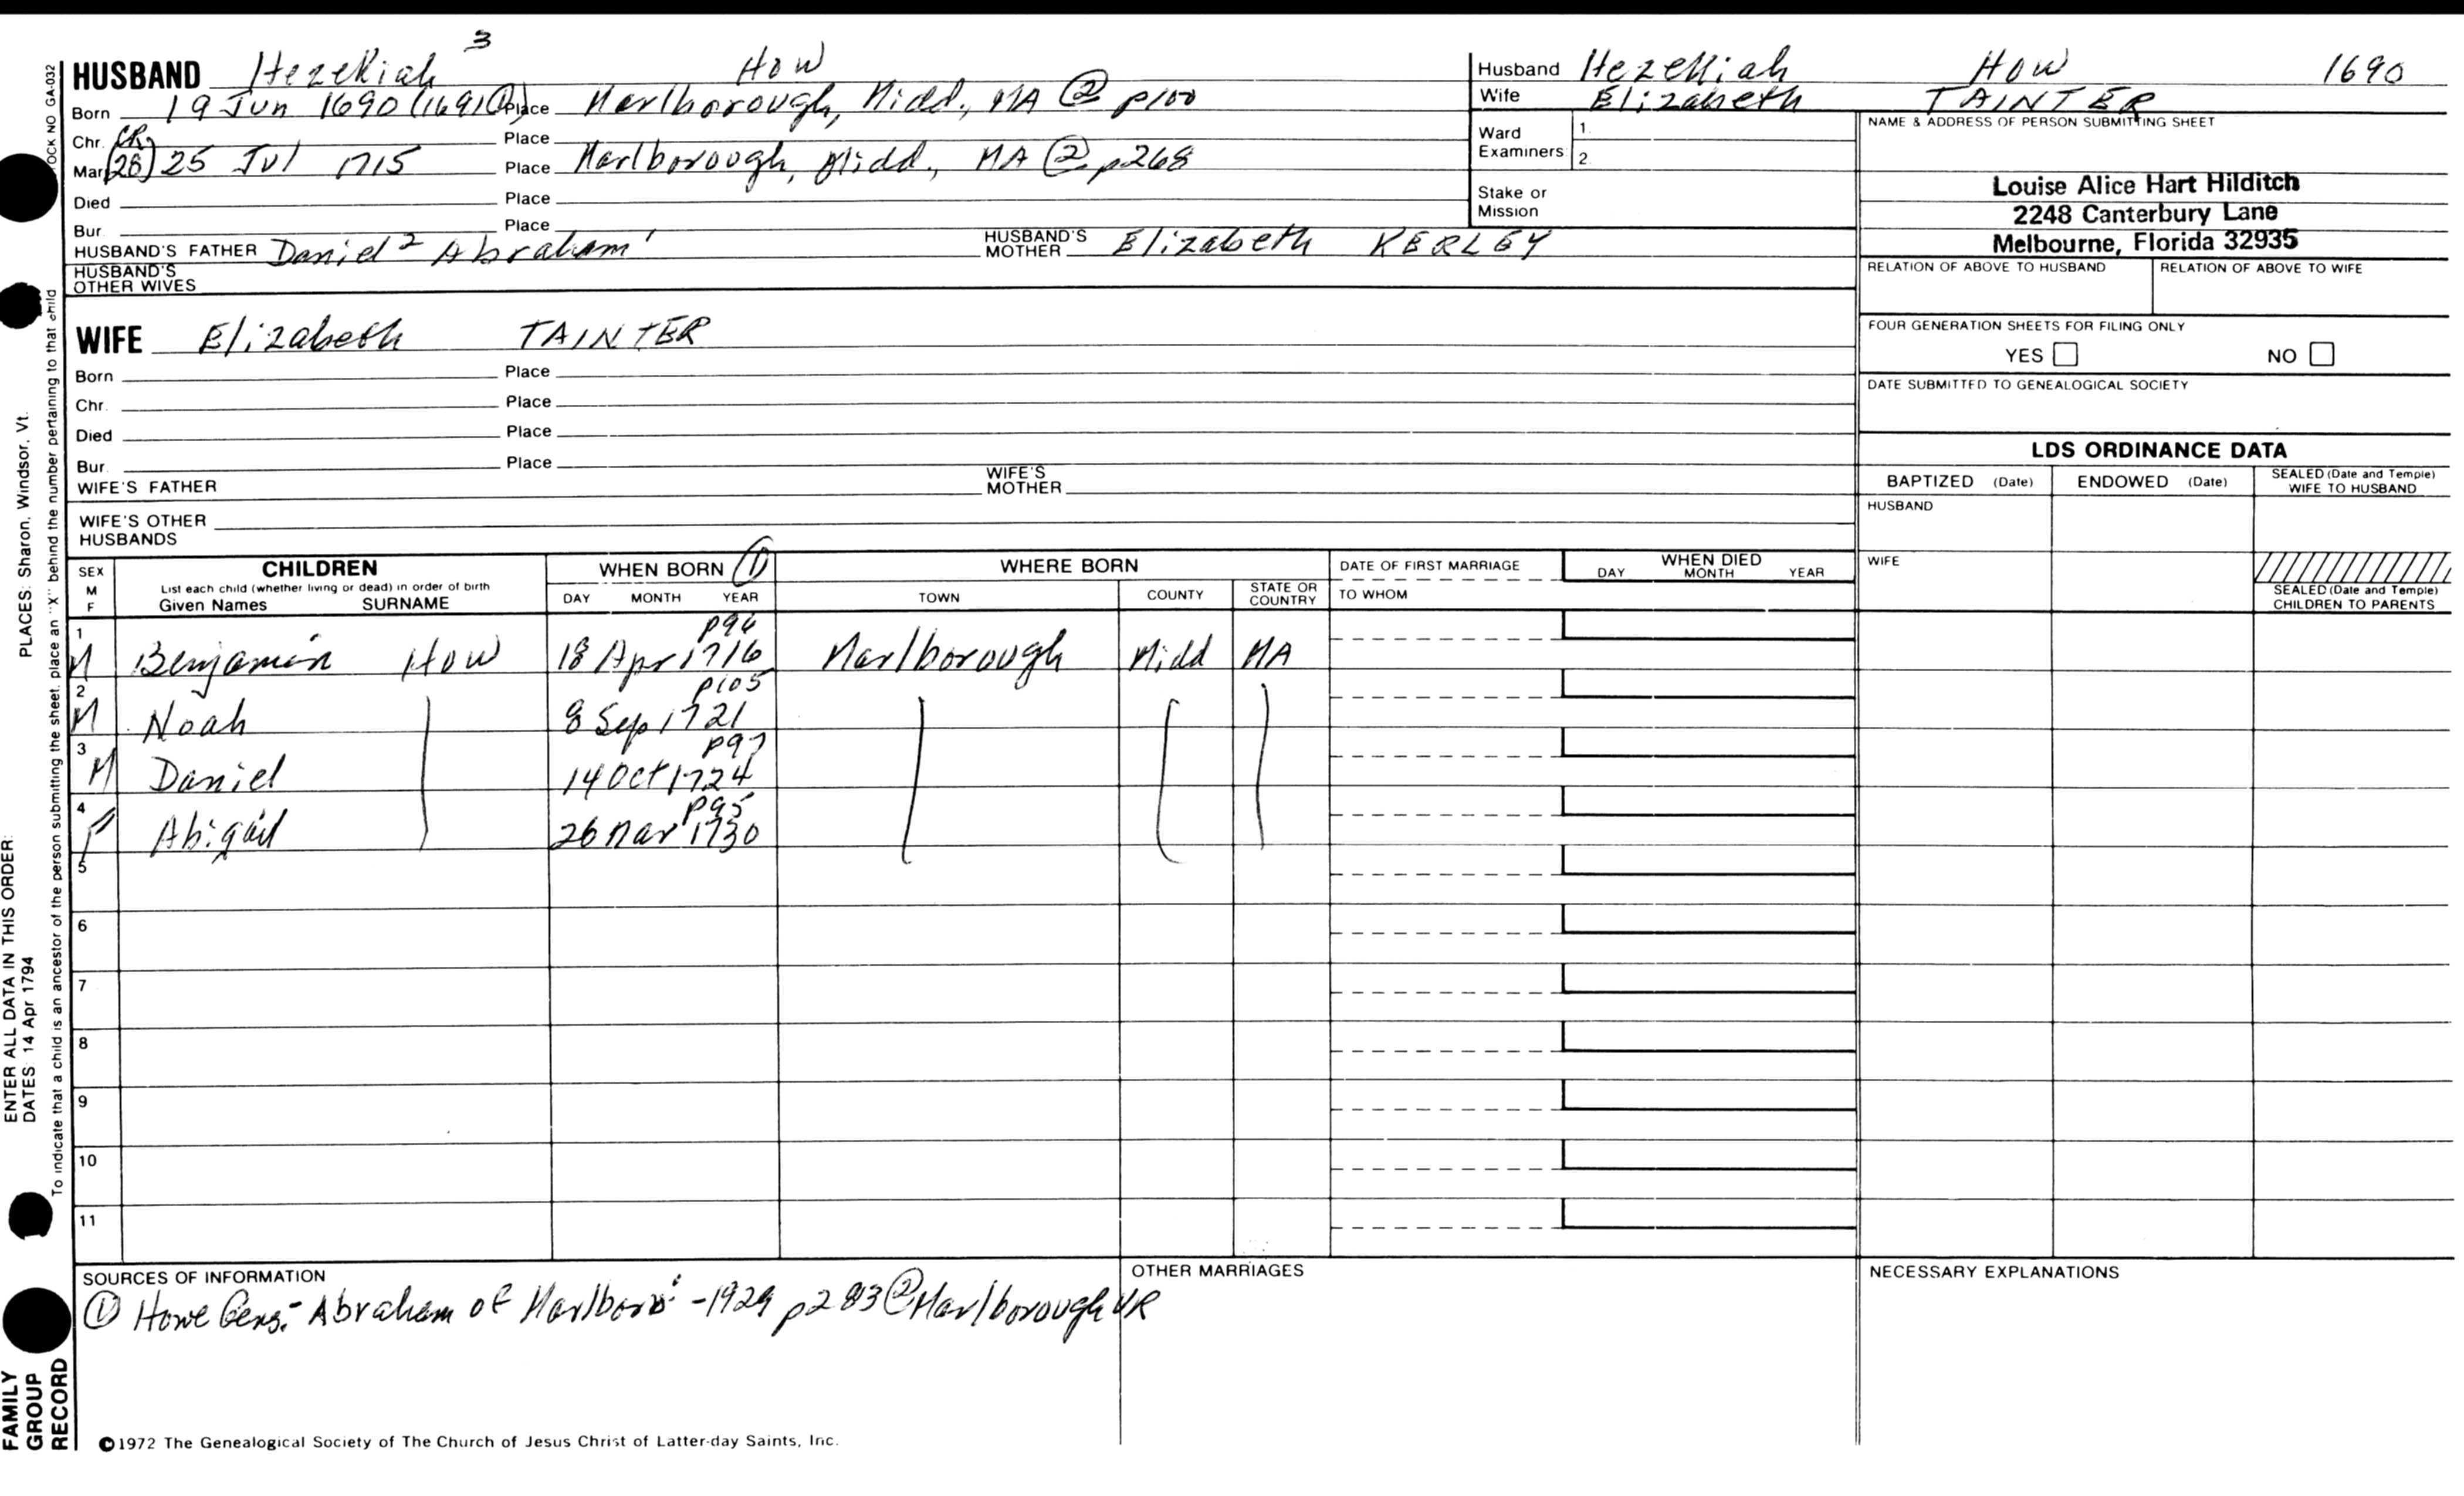 HUSBAND Hezekiah 3 How
Born 19 Jun 1690 (1691①) Place Marlborough, Midd., MA ② p100
Chr. Place
Mar. (CR 26) 25 Jul 1715 Place Marlborough, Midd., MA ② p268
Died Place
Bur. Place
HUSBAND'S FATHER Daniel 2 Abraham 1 HUSBAND'S MOTHER Elizabeth KERLEY
HUSBAND'S OTHER WIVES
WIFE Elizabeth TAINTER
Born Place
Chr. Place
Died Place
Bur. Place
WIFE'S FATHER WIFE'S MOTHER
WIFE'S OTHER HUSBANDS
Husband Hezekiah How 1690
Wife Elizabeth TAINTER
Ward Examiners 1. 2.
Stake or Mission
NAME & ADDRESS OF PERSON SUBMITTING SHEET
Louise Alice Hart Hilditch
2248 Canterbury Lane
Melbourne, Florida 32935
RELATION OF ABOVE TO HUSBAND RELATION OF ABOVE TO WIFE
FOUR GENERATION SHEETS FOR FILING ONLY
YES NO
DATE SUBMITTED TO GENEALOGICAL SOCIETY
LDS ORDINANCE DATA
BAPTIZED (Date) ENDOWED (Date) SEALED (Date and Temple) WIFE TO HUSBAND
HUSBAND
WIFE
SEALED (Date and Temple) CHILDREN TO PARENTS
SEX M F CHILDREN WHEN BORN ① WHERE BORN DATE OF FIRST MARRIAGE WHEN DIED
List each child (whether living or dead) in order of birth
Given Names SURNAME DAY MONTH YEAR TOWN COUNTY STATE OR COUNTRY TO WHOM DAY MONTH YEAR
p96
1 M Benjamin How 18 Apr 1716 Marlborough Midd MA
p105
2 M Noah 8 Sep 1721
p97
3 M Daniel 14 Oct 1724
p95
4 F Abigail 26 Mar 1730
5
6
7
8
9
10
11
SOURCES OF INFORMATION OTHER MARRIAGES NECESSARY EXPLANATIONS
① Howe Gens.- Abraham of Marlboro - 1929 p283 ② Marlborough VR
©1972 The Genealogical Society of The Church of Jesus Christ of Latter-day Saints, Inc.
OCK NO GA-032
To indicate that a child is an ancestor of the person submitting the sheet, place an "X" behind the number pertaining to that child
PLACES: Sharon, Windsor, Vt.
ENTER ALL DATA IN THIS ORDER:
DATES: 14 Apr 1794
FAMILY
GROUP
RECORD